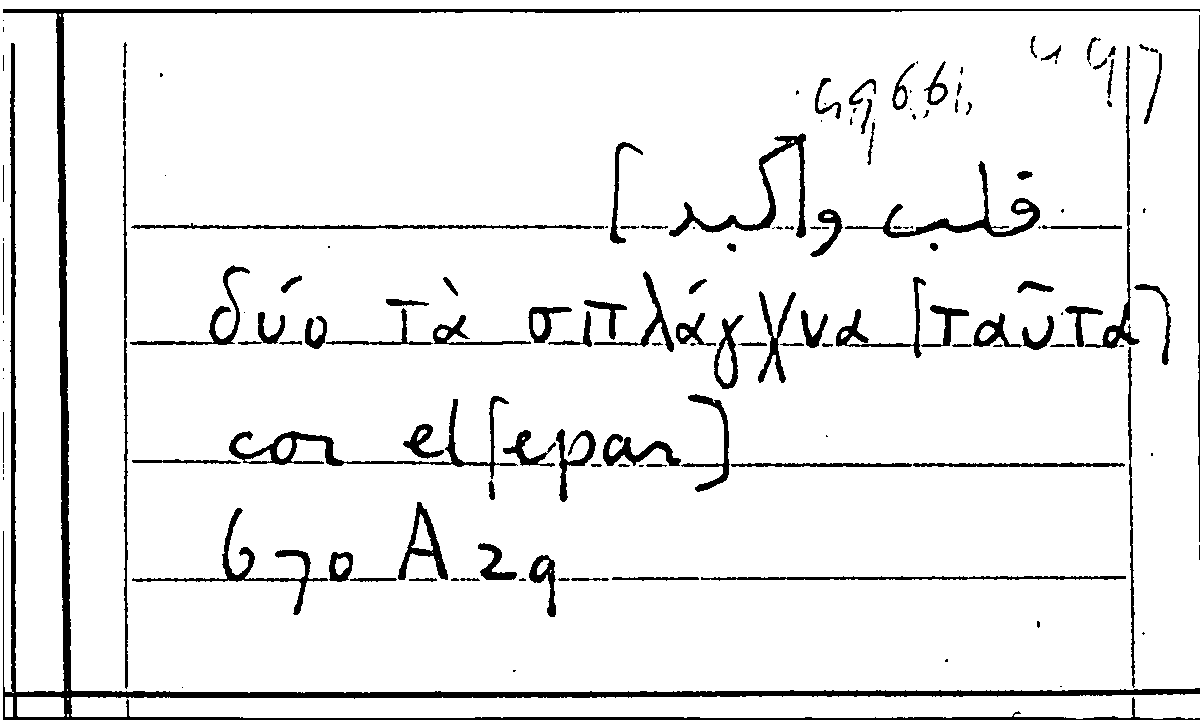 قلب و[كبد]
δύο τὰ σπλάγχνα [ταῦτα]
cor el [epar]
670 A 29